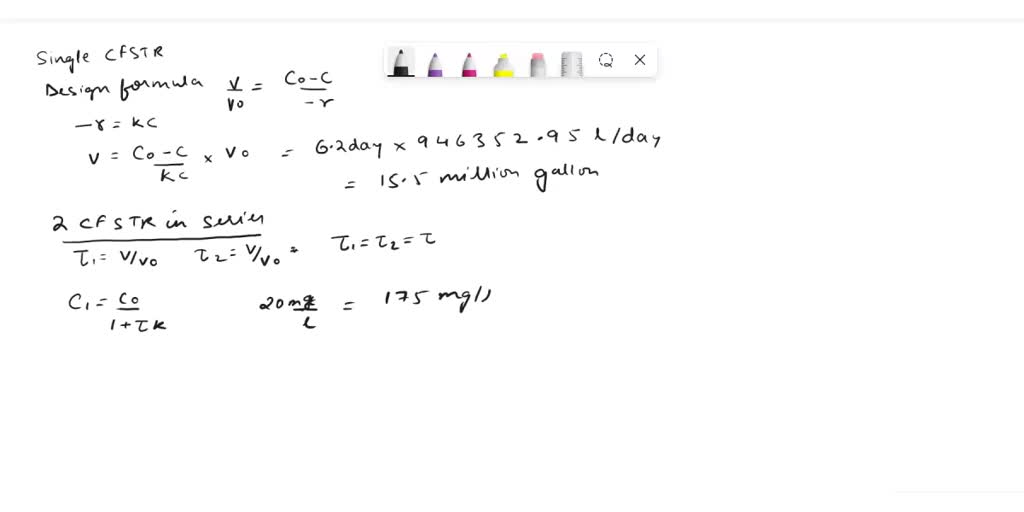 Single CFSTR
Design formula V/V0 = C0-C/-r
-r = KC
V = C0-C/KC × V0 = 6.2day × 946352.95 l/day
= 15.5 million gallon
2 CFSTR in series
τ1 = V/V0 τ2 = V/V0 = τ1 = τ2 = τ
C1 = C0/1+τK 20mg/l = 175 mg/l